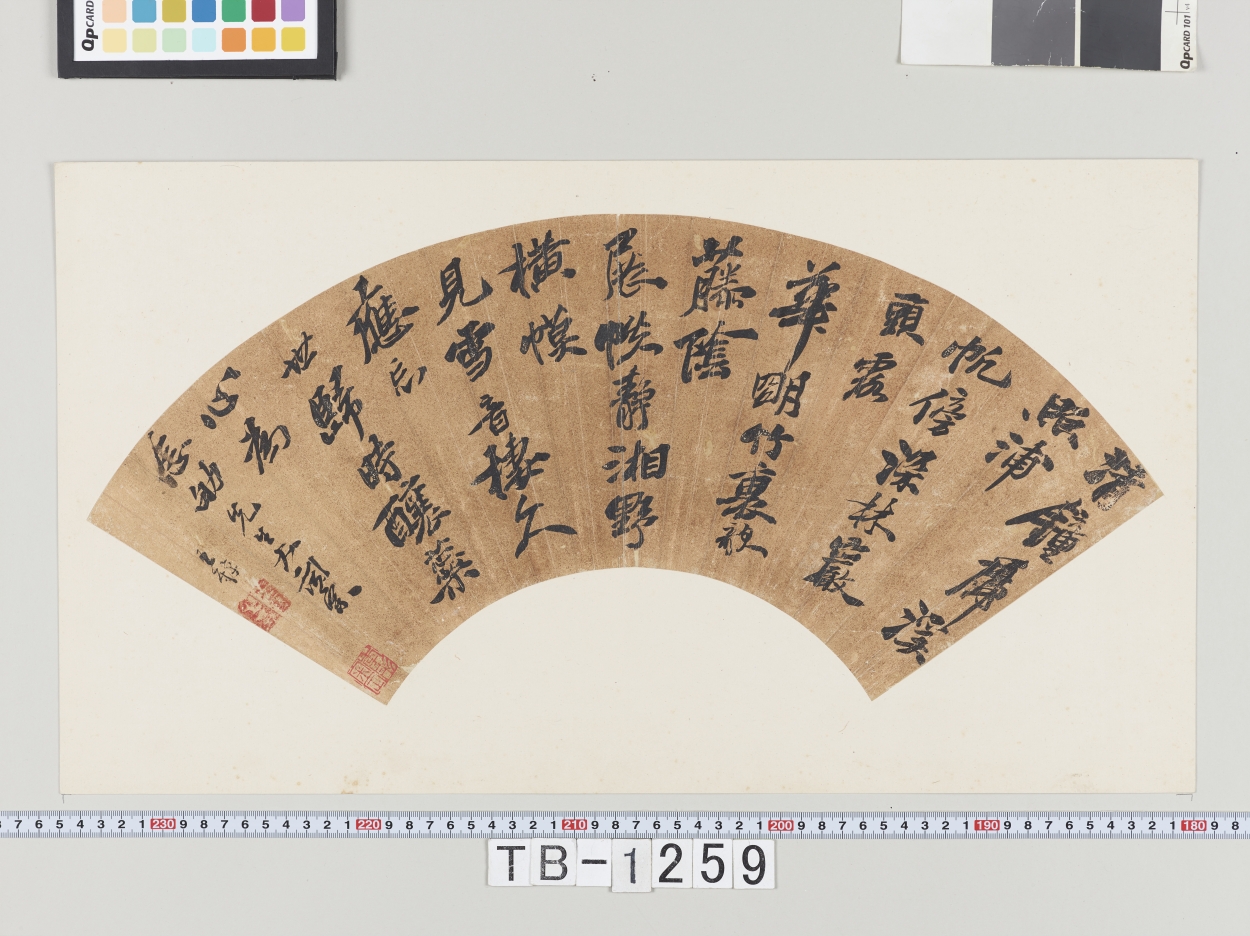 清鐘溪
照浦
帆傍深林巖
頭露
華明竹裏
藤陰
展帙靜湘野
橫幙
見雪香久
應忘
世歸時釀藥
心為
先生大詞
王鐸
TB-1259
QPCARD
QPCARD 101 v4
7 6 5 4 3 2 1 230 9 8 7 6 5 4 3 2 1 220 9 8 7 6 5 4 3 2 1 210 9 8 7 6 5 4 3 2 1 200 9 8 7 6 5 4 3 2 1 190 9 8 7 6 5 4 3 2 1 180 9 8